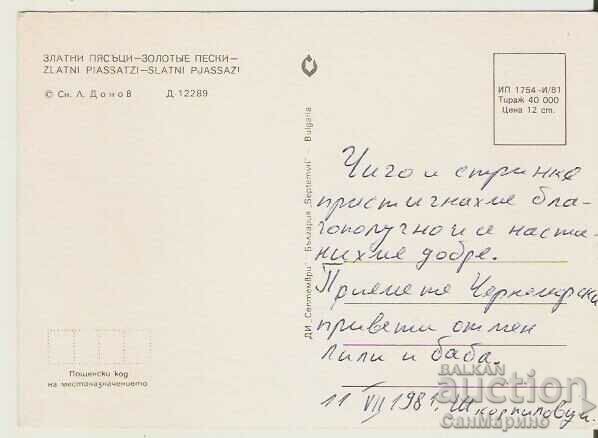 ЗЛАТНИ ПЯСЪЦИ—ЗОЛОТЫЕ ПЕСКИ—
ZLATNI PIASSATZI—SLATNI PJASSAZI
© Сн. Л. Донов Д-12289
ИП 1754-И/81
Тираж 40 000
Цена 12 ст.
ДИ „Септември" – България „Septemvri" – Bulgaria
Чичо и стринке
пристигнахме бла-
гополучно и се наста-
нихме добре.
Приемете Черноморски
привети от мен
Лили и баба.
11 VII 1981 г. Шкорпиловци.
Пощенски код
на местоназначението
BALKAN
auction
СанМарино